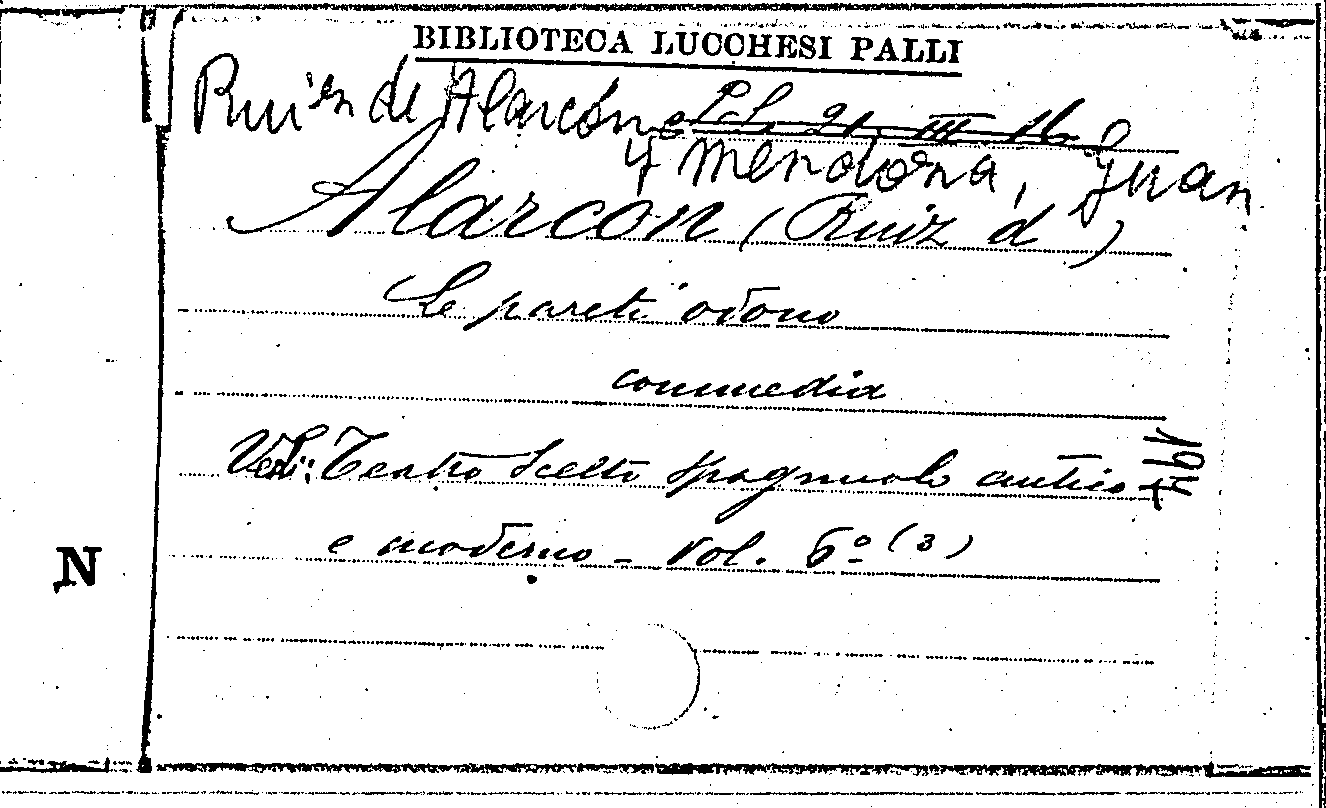 BIBLIOTECA LUCCHESI PALLI
Ruiz de Alarcón
L.L. 21. III 16
y Mendoza, Juan
Alarcon (Ruiz d')
Le pareti odono
commedia
Vedi: Teatro Scelto Spagnuolo antico
e moderno - Vol. 6º (3)
N